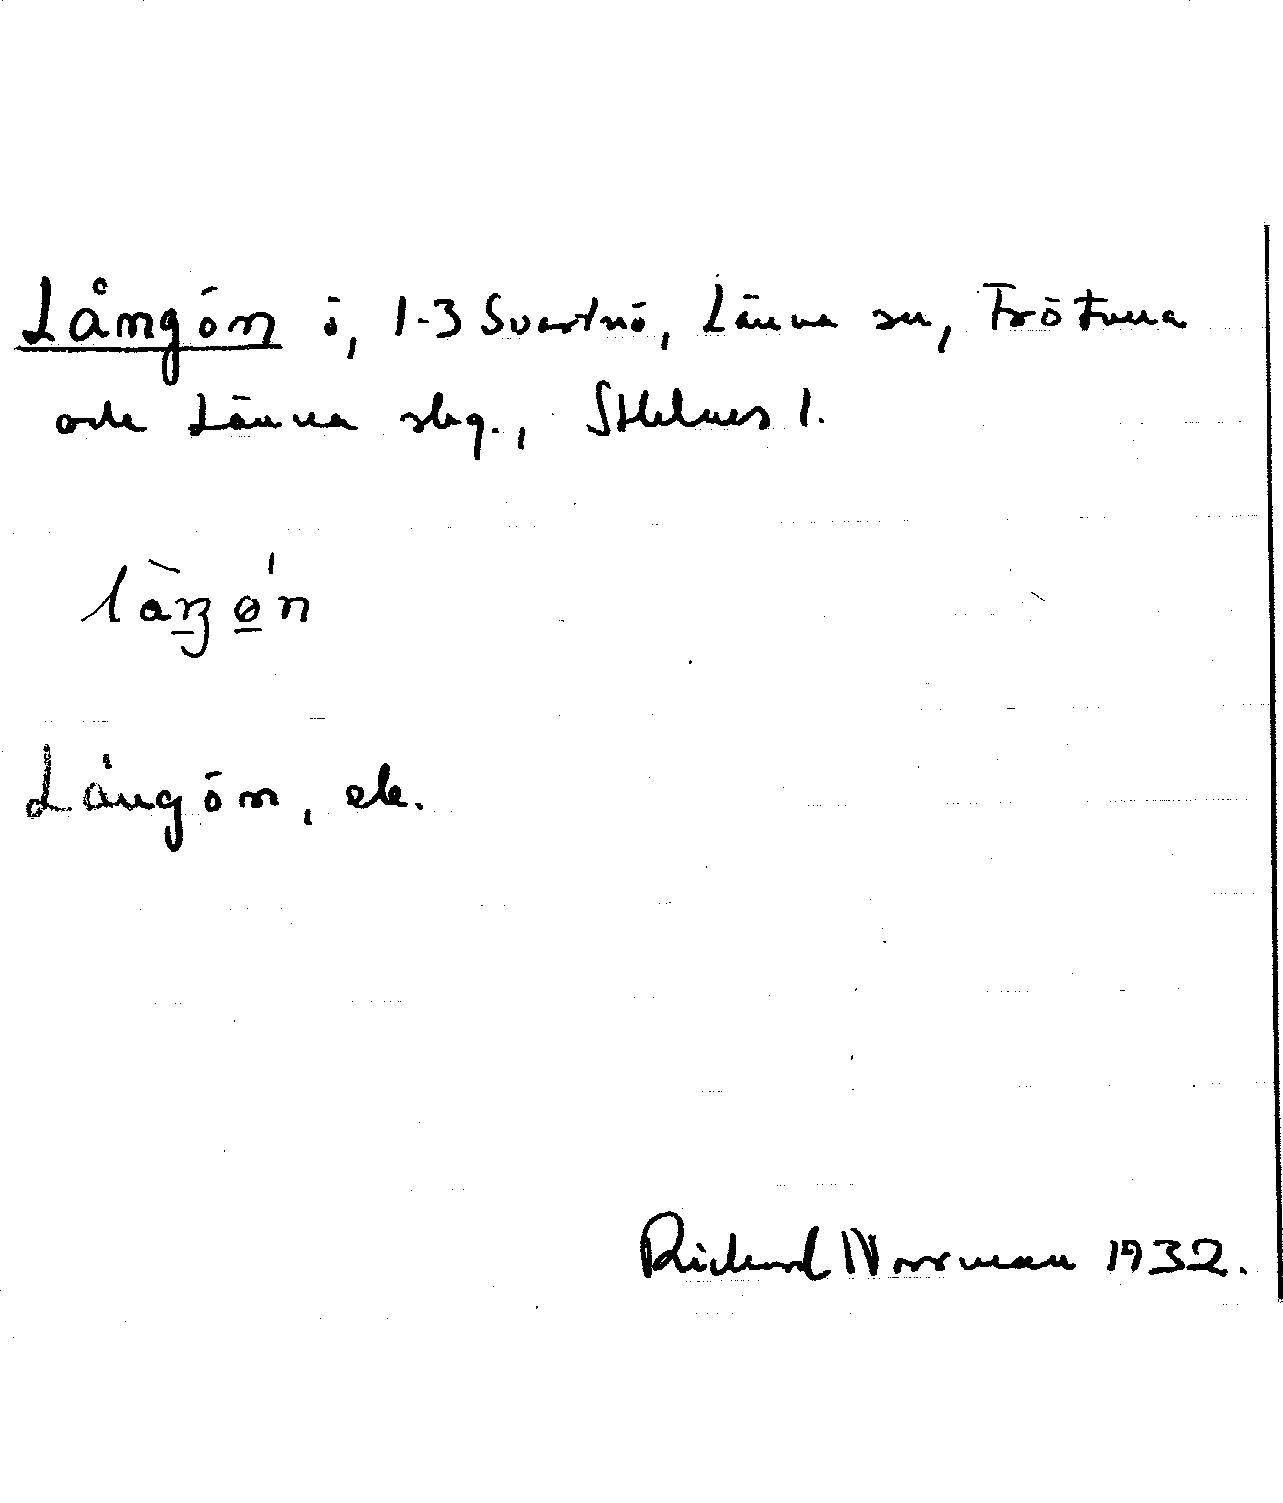 Långön ö, 1-3 Svartnö, Länna sn, Frötuna
och Länna skg., Sthlms l.
Långön, ek.
Rickard Norrman 1932.